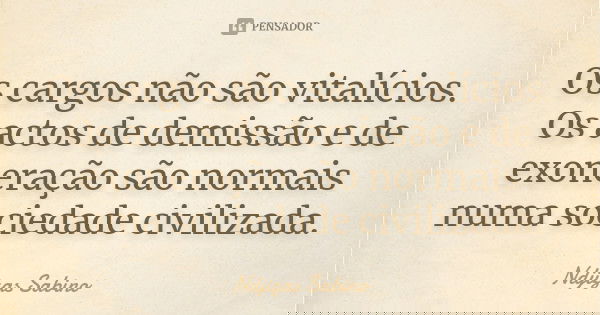 PENSADOR
Os cargos não são vitalícios.
Os actos de demissão e de
exoneração são normais
numa sociedade civilizada.
Sabino